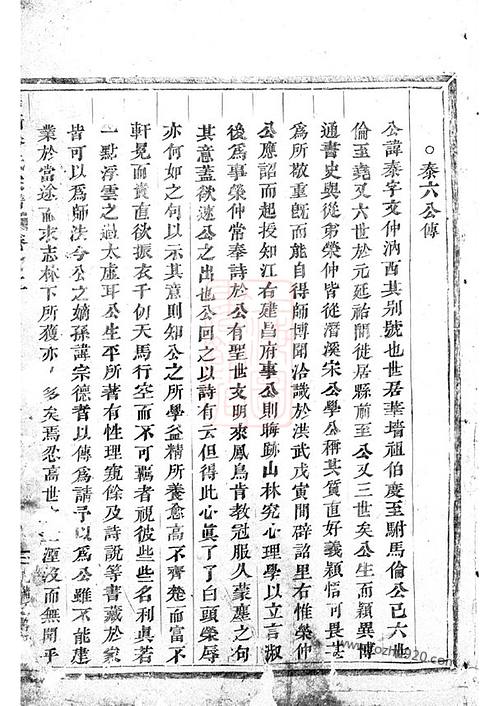 ○泰六公傳
公諱泰字文仲汭西其別號也世居華墻祖伯慶至駙馬倫公已六世
倫至堯又六世於元延祐間徙居縣前至公又三世矣公生而穎異博
通書史與從弟榮仲皆從潛溪宋公學公稱其質直好義穎悟可畏士
為所敬重旣而能自得師博聞洽識於洪武戊寅間辟詔里右惟榮仲
公應詔而起授知江右建昌府事公則晦跡山林究心理學以立言淑
後為事榮仲常奉詩於公有聖世文明來鳳鳥肯教冠服久蒙塵之句
其意蓋欲速公之出也公回之以詩有云但得此心眞了了白頭榮辱
亦何如之句以示其意則知公之所學益精所養愈高不齊卷而富不
軒冕而貴直欲振衣千仞天馬行空而不可羈者視彼些些名利眞若
一點浮雲之過太虛耳公生平所著有性理窺餘及詩說等書藏於家
皆可以為師法今公之嫡孫諱宗德者以傳為請予以為公雖不能建
業於當途而求志林下所獲亦多矣焉忍高世一湮沒而無聞乎